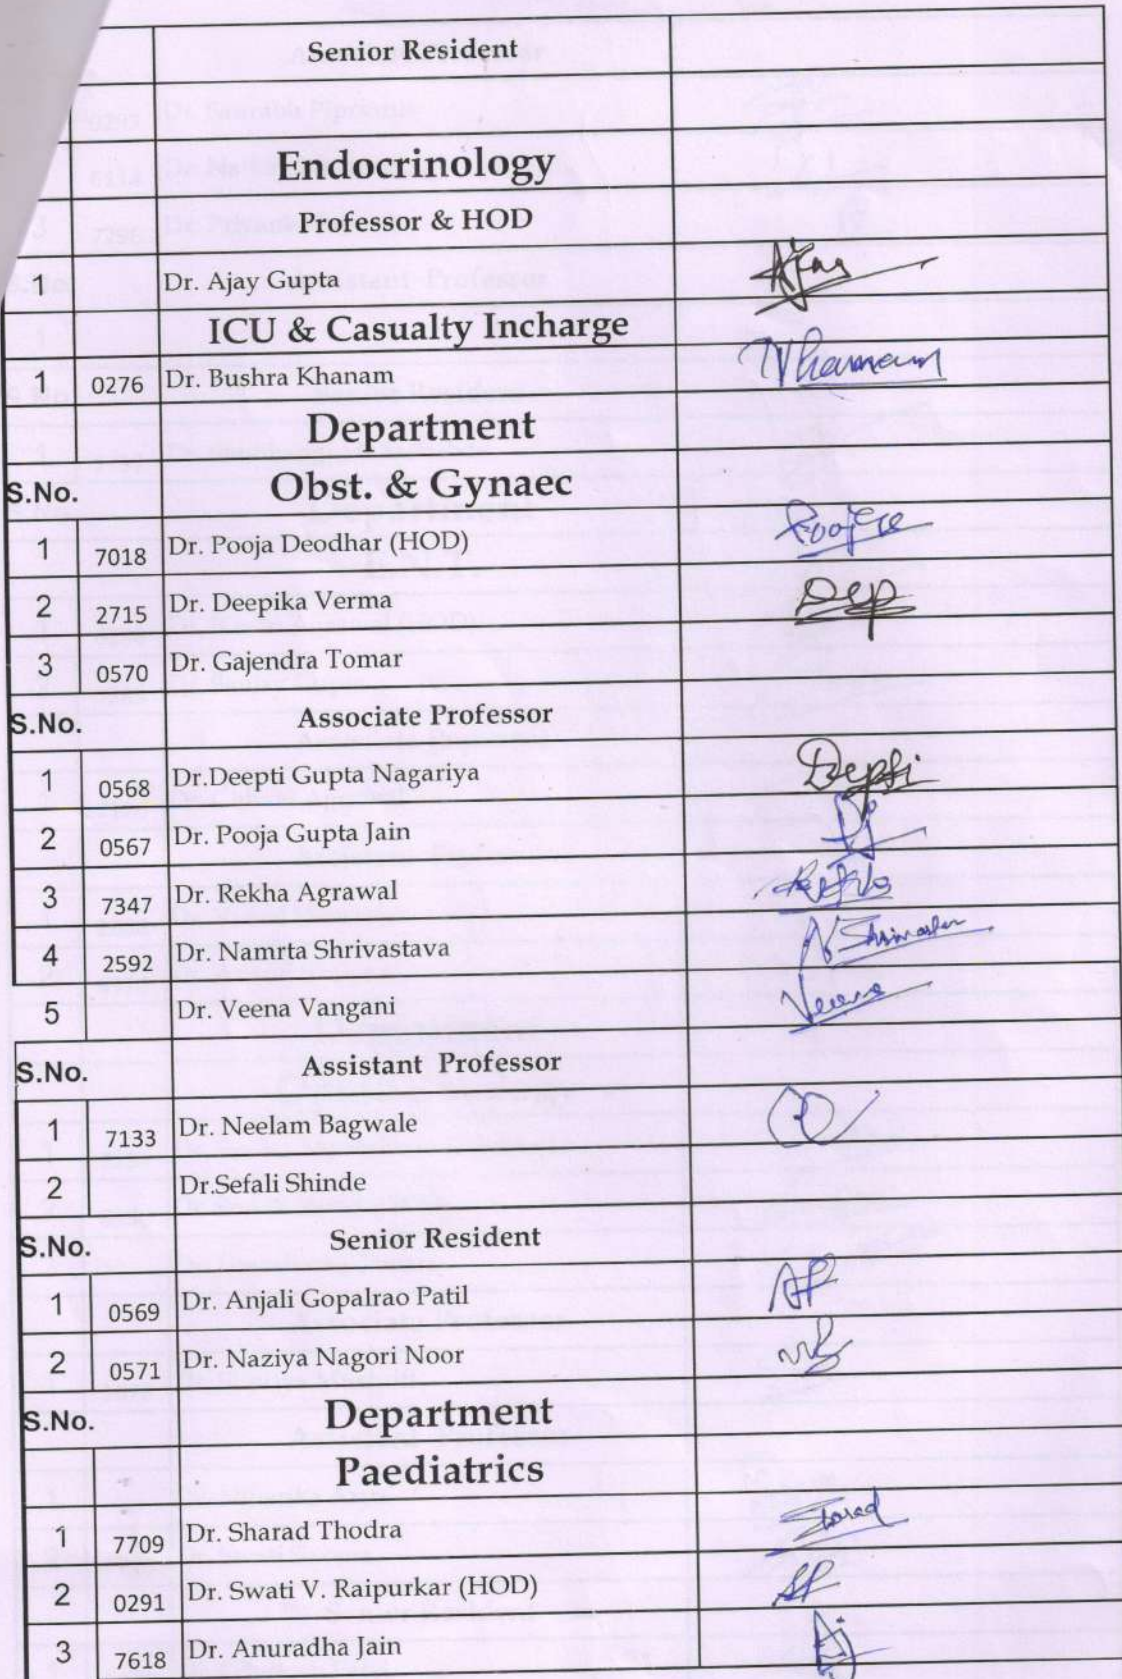 Senior Resident
Endocrinology
Professor & HOD
1 Dr. Ajay Gupta Ajay
ICU & Casualty Incharge
1 0276 Dr. Bushra Khanam Khanam
Department
S.No. Obst. & Gynaec
1 7018 Dr. Pooja Deodhar (HOD)
2 2715 Dr. Deepika Verma Dep
3 0570 Dr. Gajendra Tomar
S.No. Associate Professor
1 0568 Dr.Deepti Gupta Nagariya Deepti
2 0567 Dr. Pooja Gupta Jain Pj
3 7347 Dr. Rekha Agrawal
4 2592 Dr. Namrta Shrivastava
5 Dr. Veena Vangani Veena
S.No. Assistant Professor
1 7133 Dr. Neelam Bagwale
2 Dr.Sefali Shinde
S.No. Senior Resident
1 0569 Dr. Anjali Gopalrao Patil AP
2 0571 Dr. Naziya Nagori Noor
S.No. Department
Paediatrics
1 7709 Dr. Sharad Thodra Sharad
2 0291 Dr. Swati V. Raipurkar (HOD)
3 7618 Dr. Anuradha Jain Aj